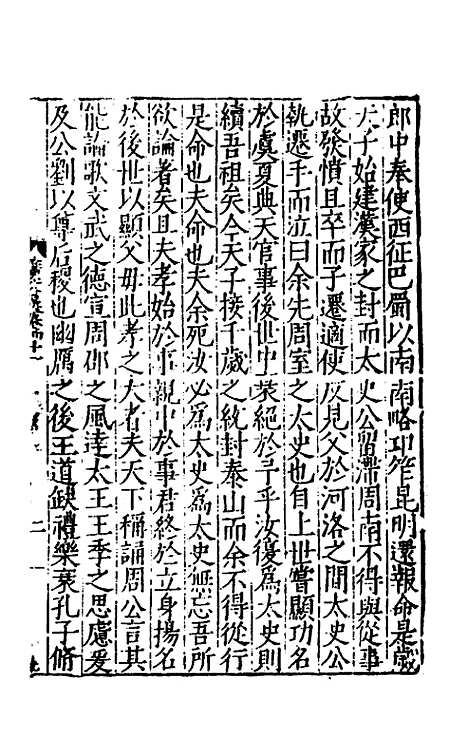 郎中奉使西征巴蜀以南南略卭笮昆明還報命是歲
天子始建漢家之封而太史公留滯周南不得與從事
故發憤且卒而子遷適使反見父於河洛之間太史公
執遷手而泣曰余先周室之太史也自上世嘗顯功名
於虞夏典天官事後世中衰絕於予乎汝復為太史則
續吾祖矣今天子接千歲之統封泰山而余不得從行
是命也夫命也夫余死汝必為太史為太史無忘吾所
欲論著矣且夫孝始於事親中於事君終於立身揚名
於後世以顯父毋此孝之大者夫天下稱誦周公言其
能論歌文武之德宣周邵之風達太王王季之思慮爰
及公劉以尊后稷也幽厲之後王道缺禮樂衰孔子脩
二